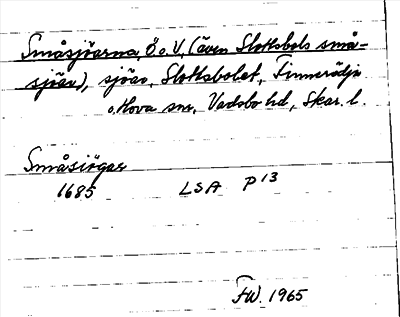 Småsjöarna, Ö o. V, (även Slottsbols små-
sjöar), sjöar, Slottsbolet, Finnerödja
o. Hova snr, Vadsbo hd, Skar. l.
Småsiögar
1685 LSA P 13
FW. 1965